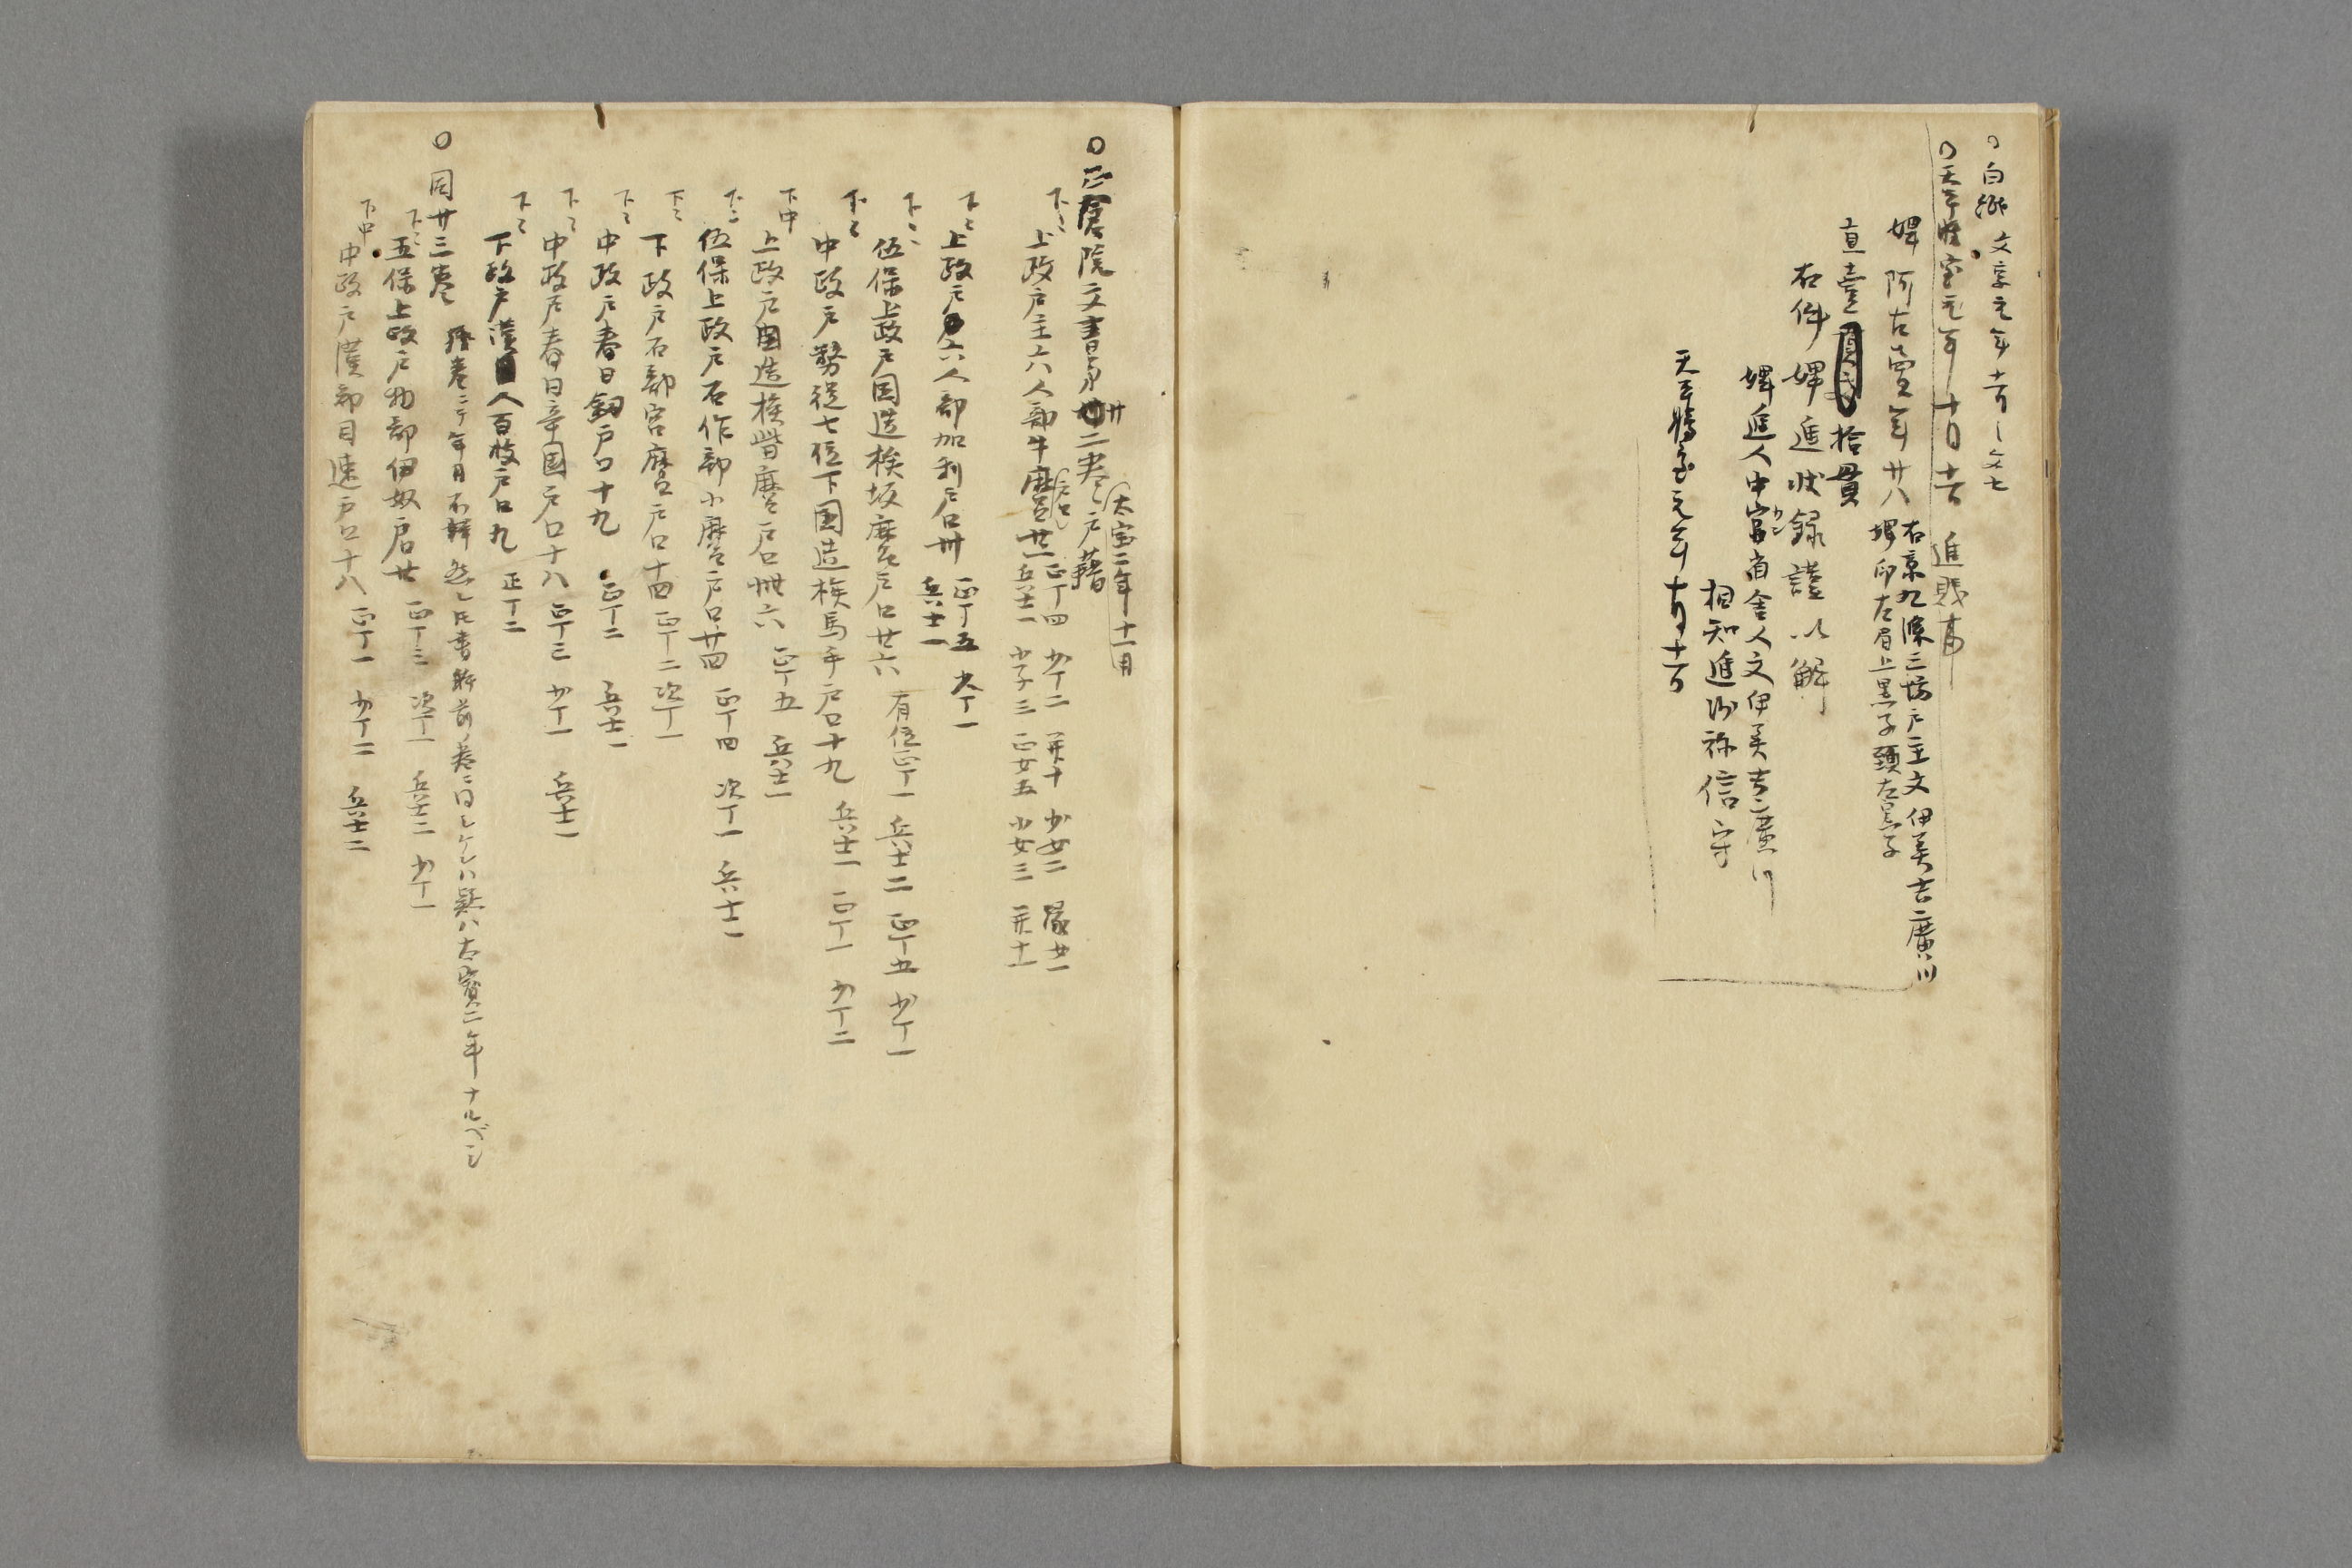 ○白紙 文章元年
○天平勝宝元年十月十一日 進賎事
婢阿古売年廿八 右京九條三坊戸主文伊美吉廣川
婢 印左眉上黒子 頸左黒子
直壹拾貫
右件婢進状録謹以解
婢進人中宮省舎人文伊美吉廣川
相知進 祢信守
天平勝宝元年十月十一日
○正倉院文書第廿二巻 戸籍 大宝二年十一月
下〻 上政戸主六人部牛麿 戸口廿一 正丁四 少丁二 并十 少女二
兵士一 少子三 正女五 少女三 并十一
下〻 上政戸六人部加利戸口卅 正丁五 少丁一
兵士一
下〻 伍保上政戸国造族坂麿戸口廿六 有位正丁一 兵士二 正丁五 少丁一
下〻 中政戸務従七位下国造族馬手戸口十九 兵士一 正丁一 少丁二
下中 上政戸国造族皆麿戸口卅六 正丁五 兵士一
下〻 伍保上政戸石作部小麿戸口廿四 正丁四 次丁一 兵士一
下〻 下政戸石部宮麿戸口十四 正丁二 次丁一
下〻 中政戸春日釼戸口十九 正丁二 兵士一
下〻 中政戸春日辛国戸口十八 正丁三 少丁一 兵士一
下〻 下政戸漢人百枝戸口九 正丁二
○同廿三巻 残巻ニテ年月不詳 然レ氏書躰前ノ巻ニ同シケレハ疑ハ大寳二年ナルベシ
下〻 五保上政戸物部伊奴戸口廿 正丁三 次丁一 兵士二 少丁一
下中 中政戸漢部目速戸口十八 正丁一 少丁二 兵士二